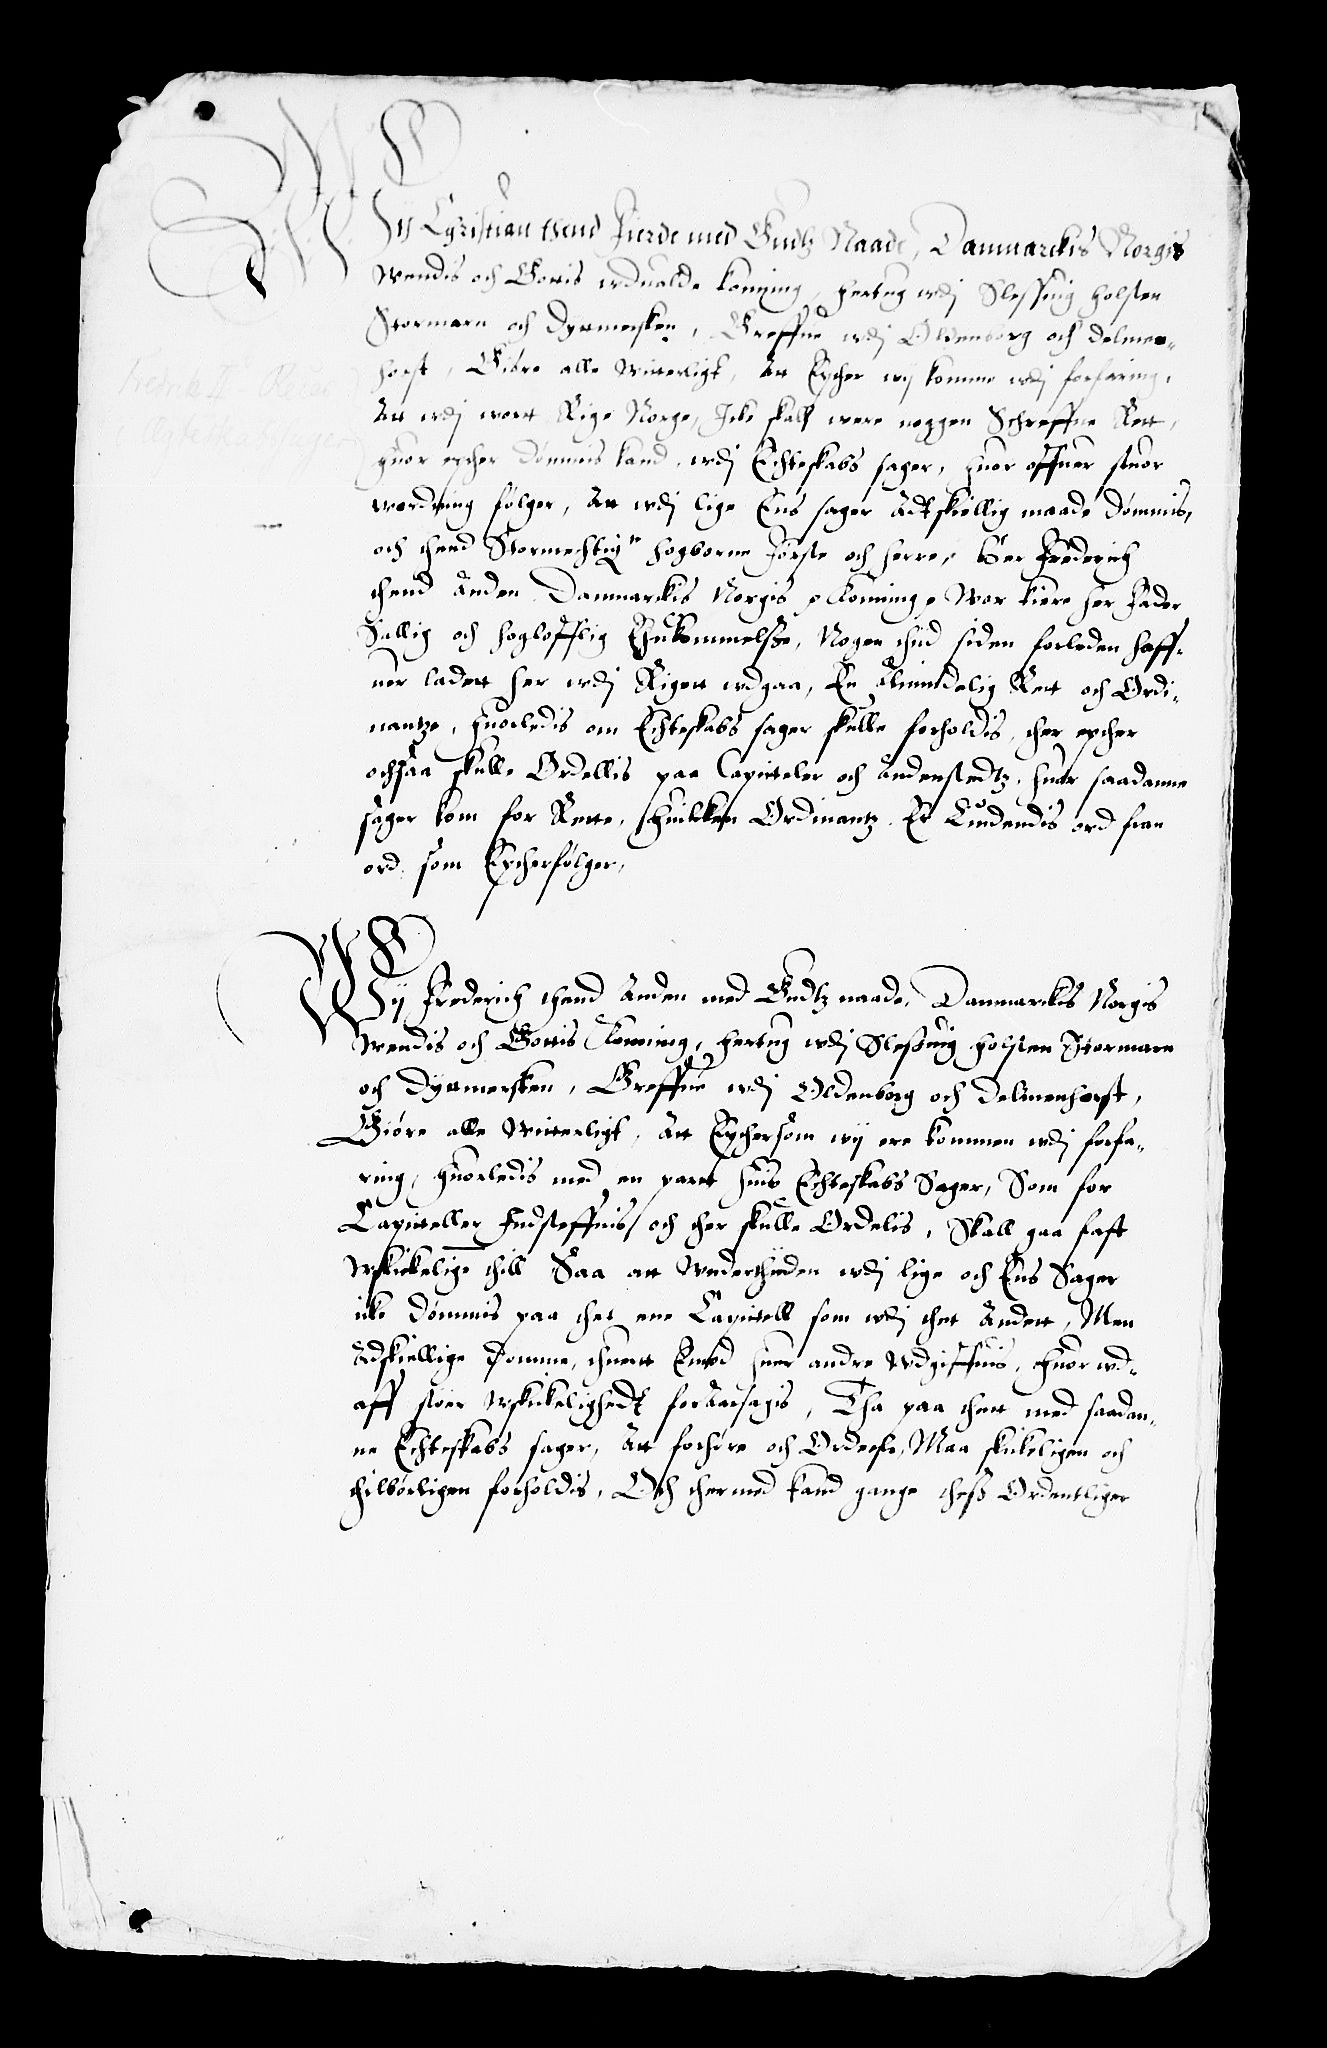 Wij Christian thend Fierde med Gudtz Naade, Danmarckis Norgis
Wendis och Gottis wdualde Konning, hertug wdj Slessuig holsten
Stormarn och Dyttmersken, Greffue wdj Oldenborg och Delmen-
horst, Giøre alle Witterligt, Att Epther wij komme wdj forfaring,
Att wdj wortt Rige Norge, Icke skall were noggen Schreffne Rett,
huor epther dømmis kand, wdj Echteskabs sager, huor offuer stuor
wordning følger, Att wdj lige Ens sager Adtskiellig maade dømmis,
och thend Stormechtigste hogborne Første och herre, her Frederich
thend Anden Danmarckis Norgis p Konning p Wor kiere her Fader
Sallig och hoglofflig Ihukommelsze, Nogen thid siden forleden haff-
uer ladett her wdj Rigett wdgaa, En Almindelig Rett och Ordi-
nantze, huorledis om Echteskabs sager skulle forholdis, ther epther
ochsaa skulle Ordellis paa Capitteler och andenstedtz, huor saadanne
sager kom for Rette, Huilcken Ordinantz Er Liudendis ord fran
ord som Eptherfølger,
Wij Frederich thend Anden med Gudtz naade, Danmarckis Norgis
Wendis och Gottis Konning, hertug wdj Slesuig holsten Stormarn
och Dyttmersken, Greffue wdj Oldenborg och Delmenhorst,
Giøre alle Witterligt, Att Epthersom wij ere kommen wdj forfa-
ring, huorledis med en partt huis Echteskabs Sager, Som for
Capitteller Indsteffnis, och ther skulle Ordelis, Skall gaa fast
wskickelige thill Saa att Wnderthiden wdj lige och Ens Sager
icke dømmis paa thet ene Capittell som wdj thet Andett, Men
Adskiellige Domme, thuertt Emod huer andre Wdgiffuis, huor wd-
aff stoer Wskickelighedt forAarsagis, Tha paa thett med saadan-
ne Echteskabs sager, Att forhøre och Ordele, Maa skickeligen och
thilbørligen forholdis, Och thermed kand gange thesz Ordentliger